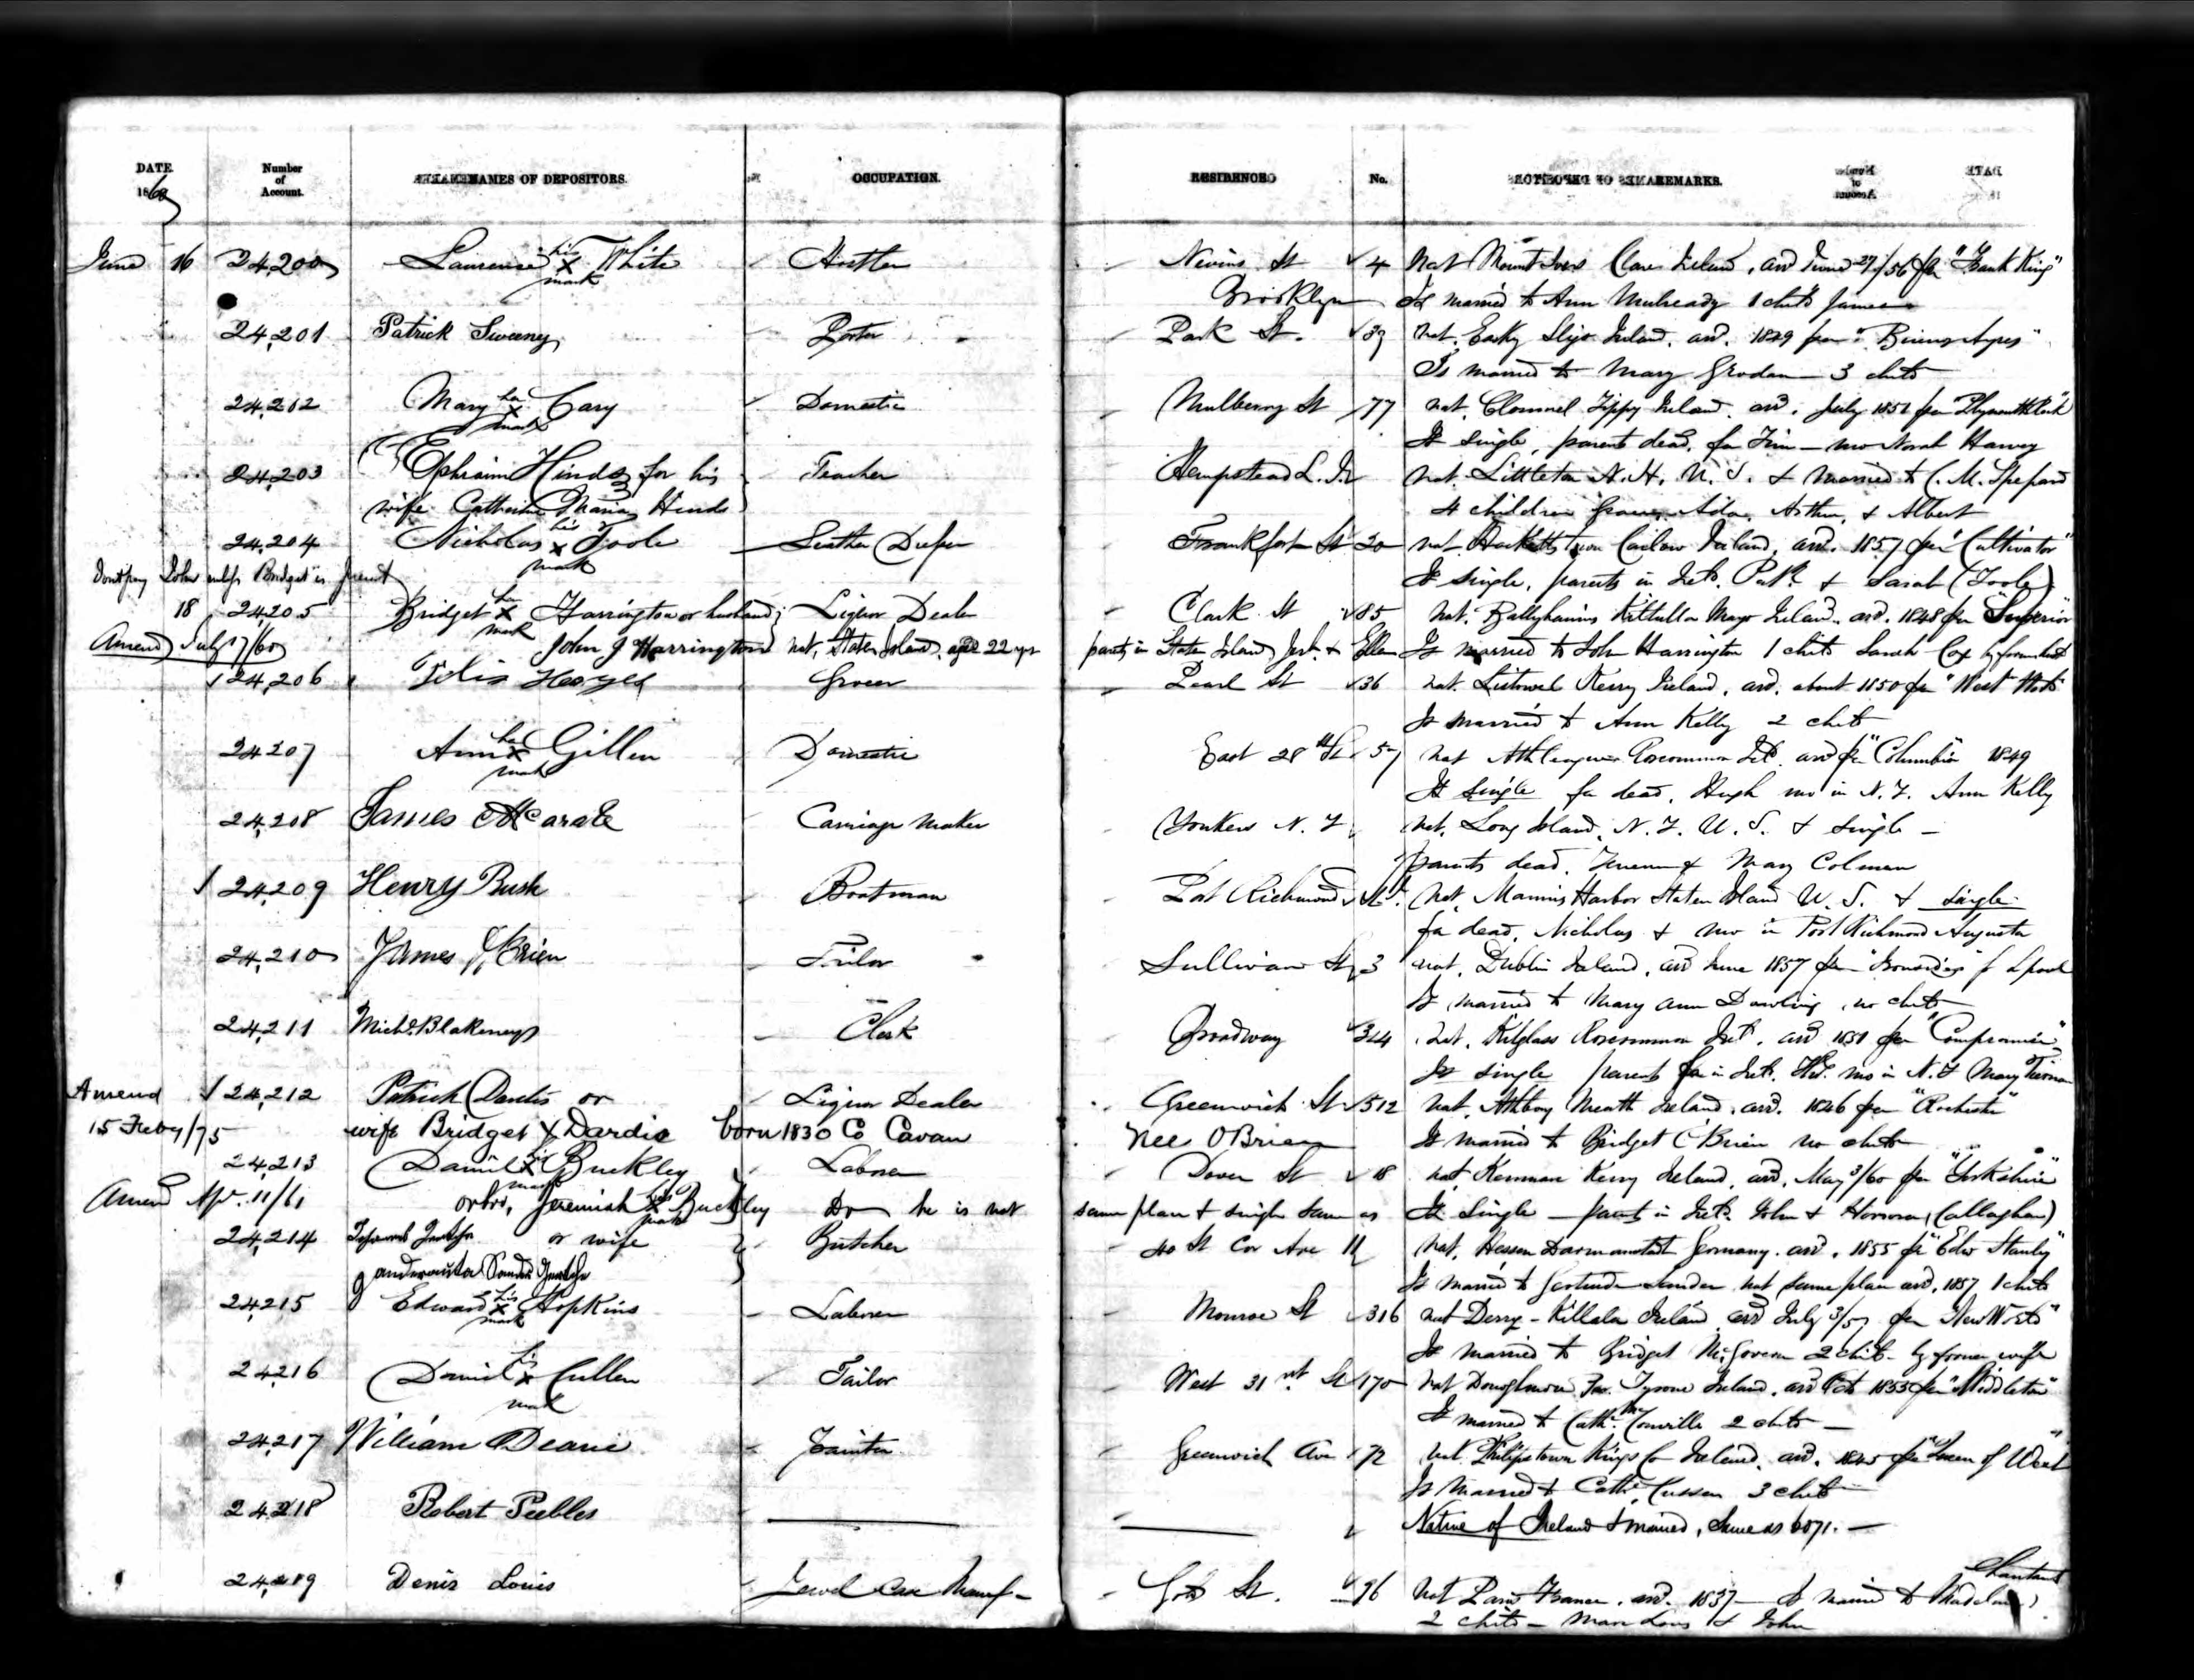 DATE. Number of Account. NAMES OF DEPOSITORS. OCCUPATION. RESIDENCE No. REMARKS.
1860
June 16 24,200 Laurence his x mark White Hostler Nevins St 4 nat Clare Ireland, arr June 27/56 per "Frank King"
Brooklyn Is married to Ann Mulready 1 child James
24,201 Patrick Sweeny Porter Park St. 39 nat. Easky Sligo Ireland. arr. 1849 per "Buenos Ayres"
Is married to Mary 3 childn
24,202 Mary her x mark Cary Domestic Mulberry St 77 nat. Clonmel Tippy Ireland. arr. July 1851 per "Plymouth Rock"
Is single, parents dead, fa Tim — mo Norah Harvey
24,203 Ephraim Hinds for his Teacher Hempstead L. I. nat. Littleton N. H. U. S. & married to C. M. Shepard
wife Catherine Maria Hinds 4 children Ada, Arthur, & Albert
24,204 Nicholas his x mark Toole Leather Dresser Frankfort St 20 nat. Hacketts town Carlow Ireland, arr. 1857 per "Cultivator"
Is single, parents in Ireld. Patk. & Sarah (Toole)
Dont pay John unless Bridget is present
18 24,205 Bridget her x mark Harrington or husband Liquor Dealer Clark St 85 nat. Mayo Ireland. arr. 1848 per "Superior"
Amend July 17/60 John J Harrington nat. Staten Island, age 22 yrs parts in Staten Island & Ellen Is married to John Harrington 1 child Sarah Cox by former husb
24,206 Grocer Pearl St 36 nat. Listowel Kerry Ireland, arr. about 1850 per "West Point"
Is married to Ann Kelly 2 childn
24207 Ann her x mark Gillen Domestic East 28th St 57 nat Athleague Roscommon Ireld. arr per "Columbia" 1849
Is single fa dead, Hugh mo in N. Y. Ann Kelly
24,208 James Carriage Maker Yonkers N. Y nat. Long Island, N. Y. U. S. & Single —
parents dead. & Mary Colman
24,209 Henry Bush Boatman Port Richmond S.I. nat. Harbor Staten Island U. S. & single
fa dead, Nicholas & mo in Port Richmond Augusta
24,210 James O'Brien Tailor Sullivan St 3 nat. Dublin Ireland, arr June 1857 per "Ironsides" f Lpool
Is married to Mary Ann Dowling, no childn
24,211 Michl. Blakeney Clerk Broadway 344 nat. Kilglass Roscommon Ireld. arr 1851 per "Compromise"
Is single parent fa in Ireld. mo in N. Y Mary Tiernan
Amend 24,212 Patrick Dardis or Liquor Dealer Greenwich St 512 nat. Athboy Meath Ireland. arr. 1846 per "Rochester"
15 Feby/75 wife Bridget X Dardis born 1830 Co Cavan nee O'Brien Is married to Bridget O'Brien no childn
24,213 Daniel his x mark Buckley Laborer Dover St 18 nat. Kenmare Kerry Ireland, arr. May 3/60 per "Yorkshire"
Amend Apr. 11/61 or bro, Jeremiah his x mark Buckley Do he is nat same place & single same as Is single — parents in Ireld. John & Honora (Callaghan)
24,214 or wife Butcher 40 St Cor Ave 11 nat. Hessen Darmenstadt Germany. arr. 1855 per "Edw Stanly"
Is married to Gertrude Sander nat same place arr. 1857 1 child
24,215 Edward his x mark Hopkins Laborer Monroe St 316 nat Derry - Killala Ireland arr July 3/57 per "New World"
Is married to Bridget McGovern 2 childn by former wife
24216 Daniel his x mark Cullen Tailor West 31st St 170 nat Donoghmore Tyrone Ireland. arr Oct 1853 per "Middleton"
Is married to Cathe. McConville 2 childn —
24,217 William Deane Painter Greenwich Ave 72 nat Philipstown Kings Co Ireland. arr. 1845 per "Queen of West"
Is married to Cathe. Cussen 3 childn
24,218 Robert Peebles Native of Ireland & married, Same as 6071. —
24,219 Denis Louis Jewel Case Manuf - Gold St. 96 nat Paris France. arr. 1837 — Is married to Madelaine Chantant
2 childn — & John